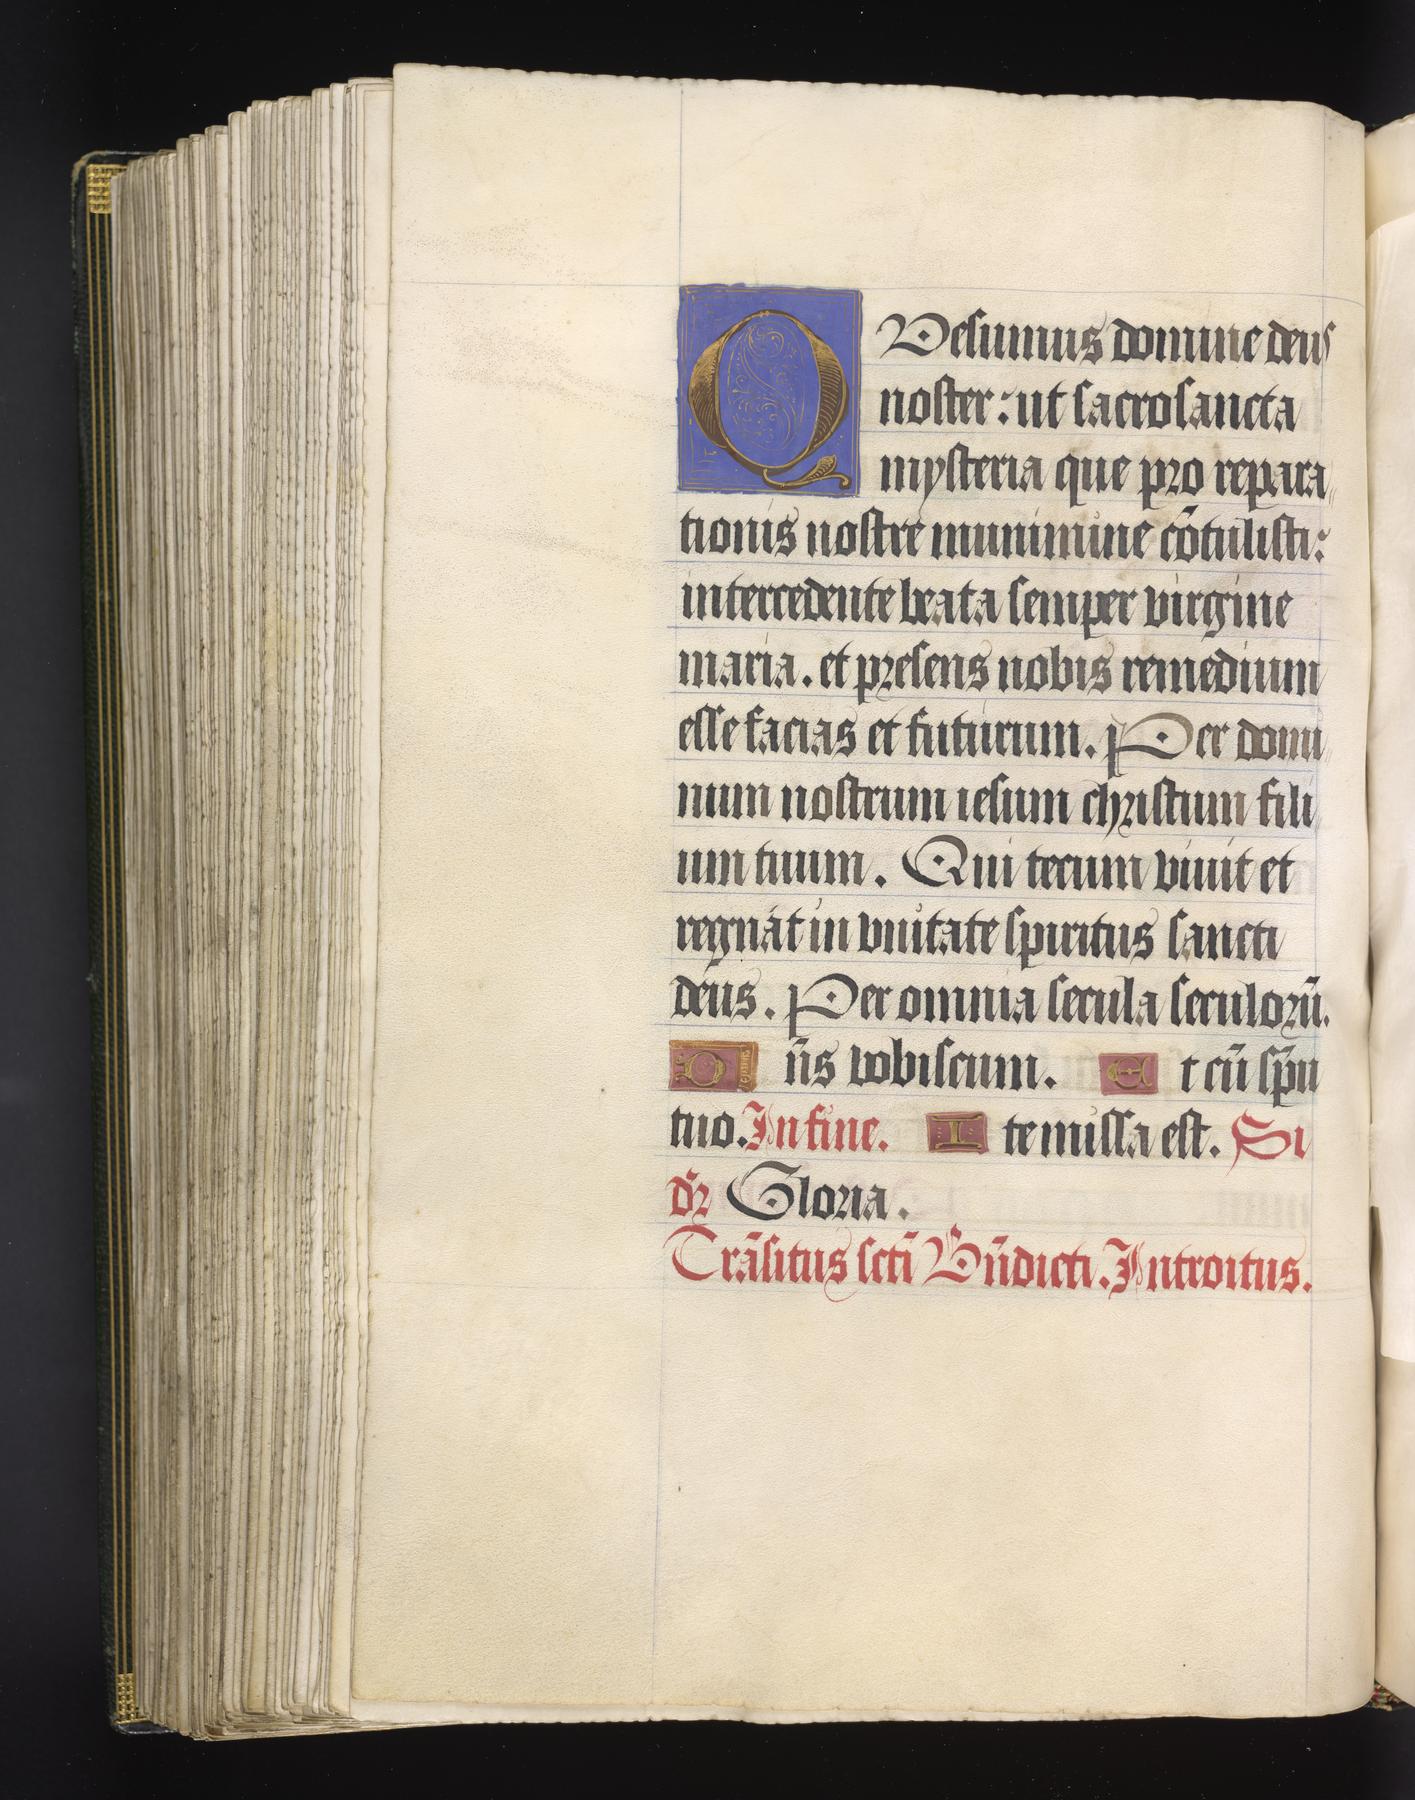 QVesumus domine deus
noster: ut sacrosancta
mysteria que pro repara
tionis nostre munimine cōtulisti:
intercedente beata semper virgine
maria. et presens nobis remedium
esse facias et futurum. Per domi
num nostrum iesum christum fili
um tuum. Qui tecum viuit et
regnat in vnitate spiritus sancti
deus. Per omnia secula seculorū.
Dn̄s vobiscum. Et cū sp̄u
tuo. In fine. Ite missa est. Si
dr̄ Gloria.
Trāsitus scti̅ Bn̄dicti. Introitus.